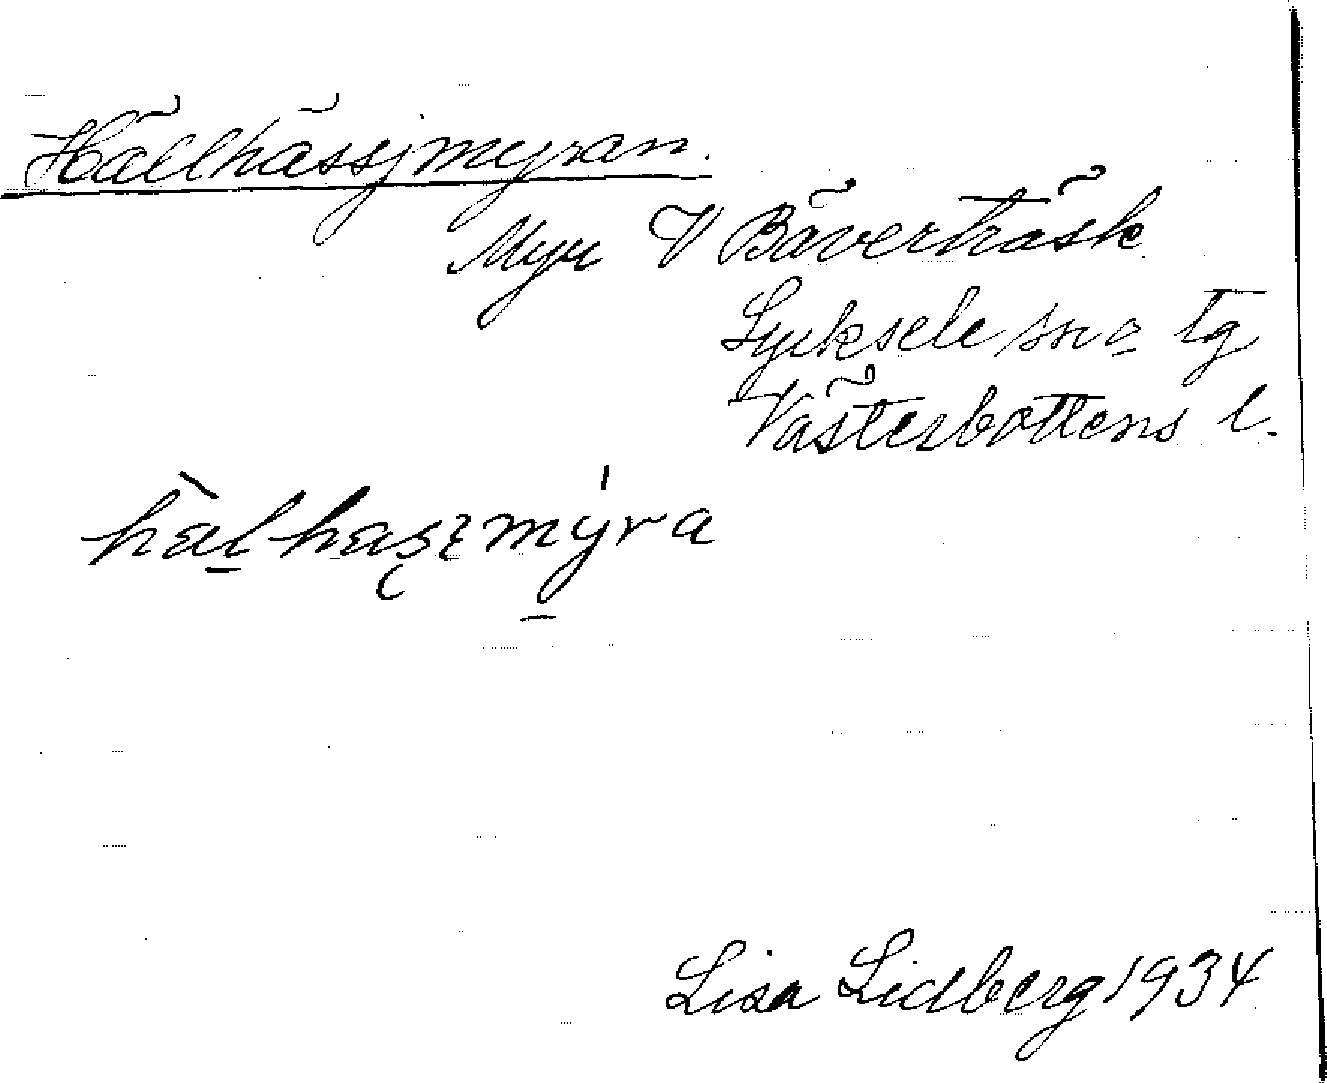 Hällhässjmyran.
Myr V Bäverträsk
Lycksele sn o tg
Västerbottens l.
Lisa Lidberg 1934